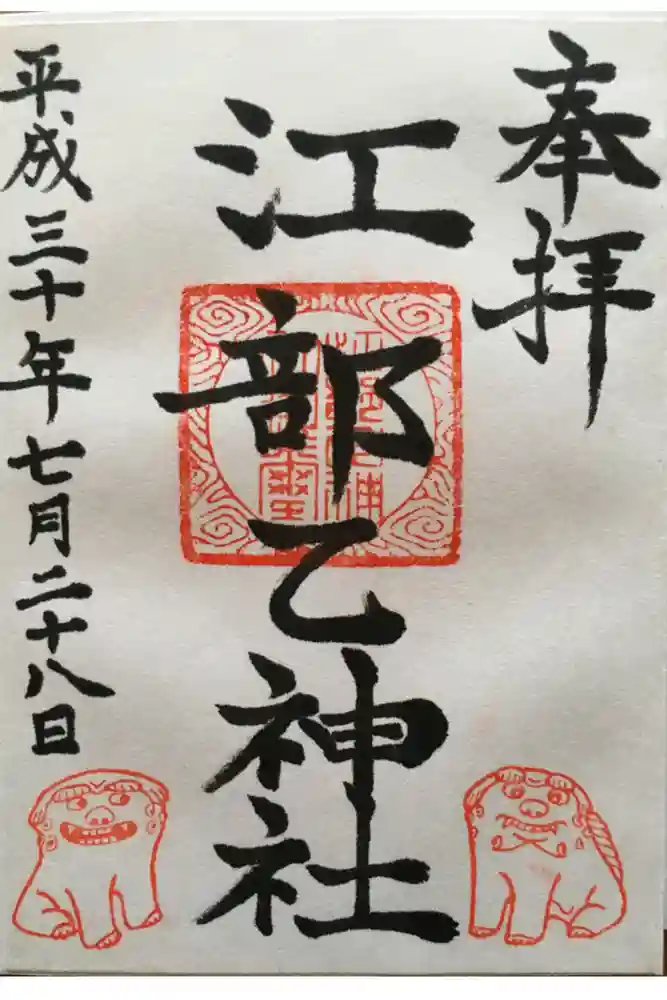 奉拝
江部乙神社
平成三十年七月二十八日